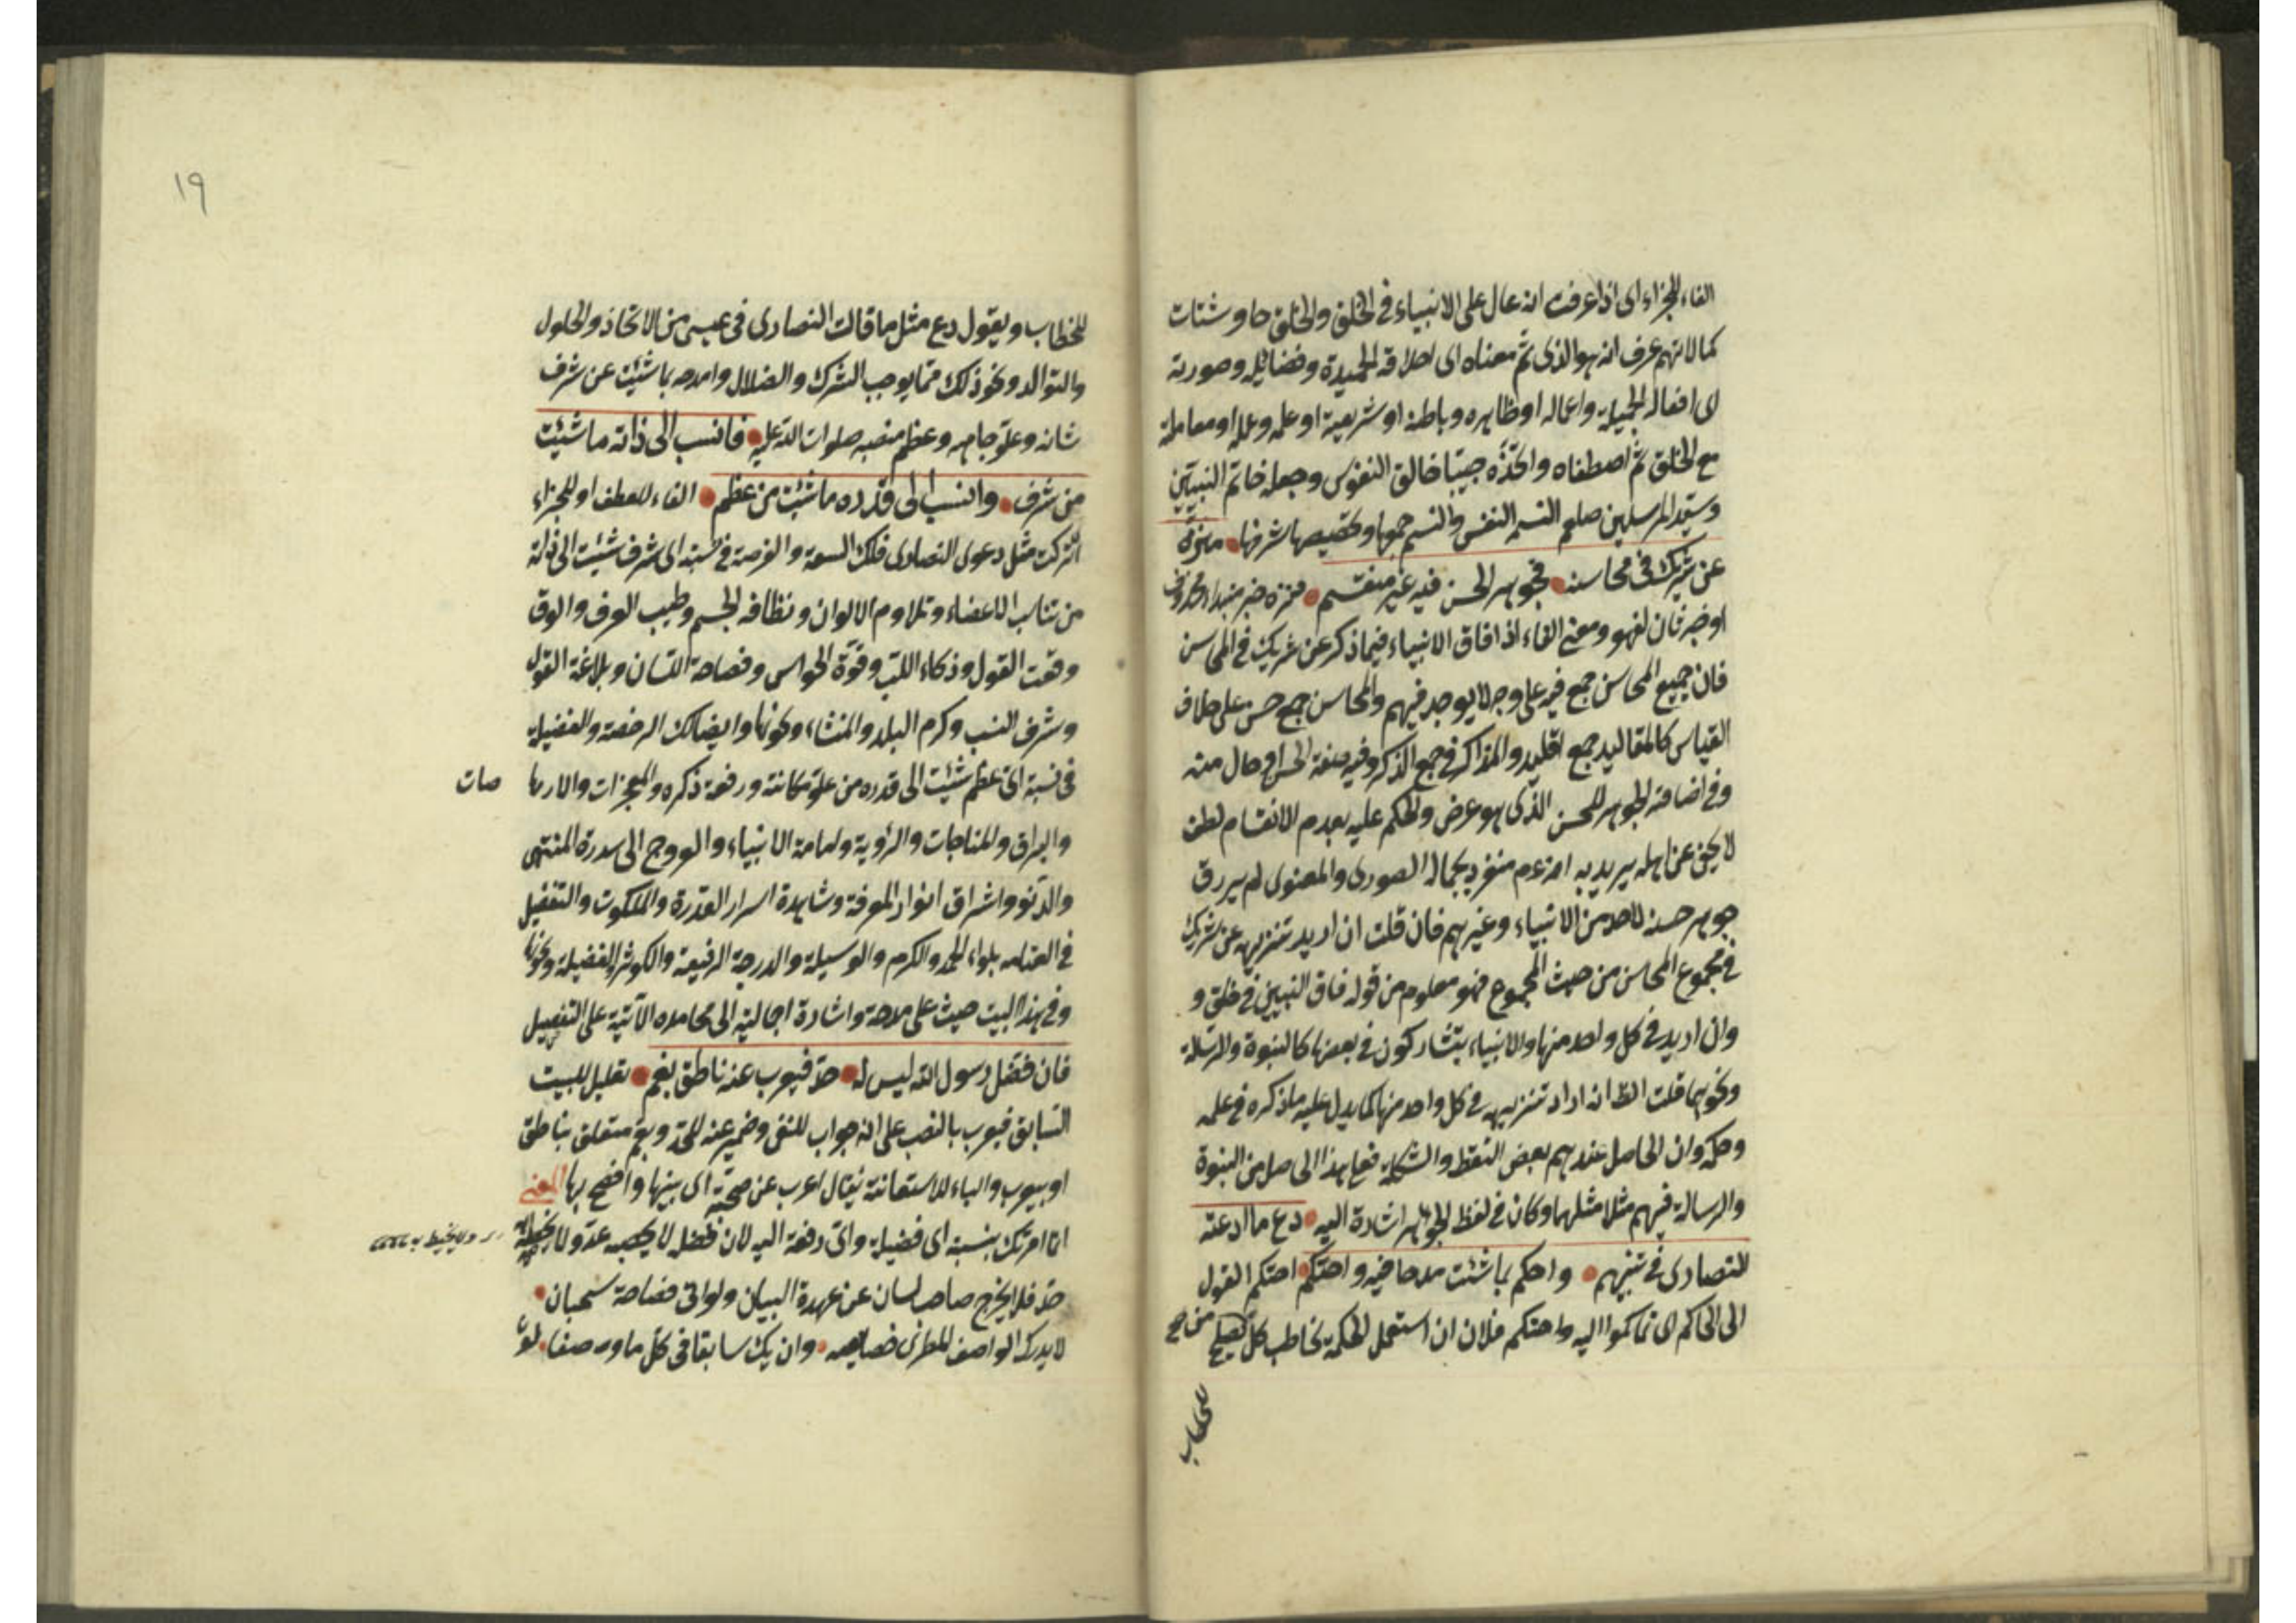 الفاء للجزاء اى اذا عرفت انه عال على الانبياء فى الخلق والخلق حاو شتات
كمالاتهم عرف انه هو الذى تم معناه اى اخلاقه الحميدة وفضائله وصورته
اى افعاله الجميلة واعماله او ظاهره وباطنه او شريعية او علمه وعمله او معاملة
مع الخلق ثم اصطفاه واتخذه حبيبا خالق النفوس وجعله خاتم النبيين
وسيد المرسلين صلعم النسم النفس والنسم جمعها وتخصيصها لشرفها منزه
عن شريك فى محاسنه فجوهر الحسن فيه غير منقسم فمنزه خبر مبتدا محذوف
او خبر ثان لفهو ومعنى الفاء اذا فاق الانبياء فيما ذكر عن شريك فى المحاسن
فان جميع المحاسن جمع فيه على وجه لا يوجد فيهم والمحاسن جمع حسن على خلاف
القياس كالمقاليد جمع اقليد والمذاكر فى جمع الذكر وفيه صفة الحسن او حال منه
وفى اضافة الجوهر للحسن الذى هو عرض والحكم عليه بعدم الانقسام لطف
لا يخفى عن اهله يريد به انه عم منفرد بجماله الصورى والمعنوى لم يرزق
جوهر حسنه لاحد من الانبياء وغيرهم فان قلت ان اريد تنزيهه عن شريك
فى مجموع المحاسن من حيث المجموع فهو معلوم من قوله فاق النبيين فى خلق و
وان اريد فى كل واحد منها والانبياء يتشاركون فى بعضها كالنبوة والرسالة
ونحوهما قلت الظ انه اراد تنزيهه فى كل واحد منها كما يدل عليه ما ذكره فى علمه
وحكمه وان الحاصل عندهم بعض النقط والشكلة فعلى هذا الحاصل من النبوة
والرسالة فيهم مثلا مثلهما وكان فى لفظ الجوهر اشارة اليه دع ما ادعته
النصارى فى نبيهم واحكم بما شئت مدحا فيه واحتكم احتكم القول
الى الحاكم اى تحاكموا اليه واحتكم فلان ان استعمل الحكمة يخاطب كل من يصلح
للخطاب
١٩
للخطاب ويقول دع مثل ما قالت النصارى فى عيسى من الاتحاد والحلول
والتوالد ونحو ذلك مما يوجب الشرك والضلال وامدحه بما شئت عن شرف
شانه وعلو جاهه وعظم منصبه صلوات الله عليه فانسب الى ذاته ما شئت
من شرف وانسب الى قدره ما شئت من عظم الفاء للعطف او للجزاء
اتركت مثل دعوى النصارى فلك السعة والرخصة فى نسبة اى شرف شئت الى ذاته
من تناسب الاعضاء وتلاوم الالوان ونظافة الجسم وطيب العرف والعرق
وقوت القول وذكاء اللب وقوة الحواس وفصاحة اللسان وبلاغة القول
وشرف النسب وكرم البلد والمنشاء ونحوها وايضا لك الرخصة والفضيلة
فى نسبة اى عظم شئت الى قدره من علو مكانته ورفعة ذكره والمعجزات والارها
صات
والبراق والمناجات والرؤية وامامة الانبياء والعروج الى سدرة المنتهى
والدنو واشراق انوار المعرفة ومشاهدة اسرار القدرة والملكوت والتفضيل
فى القيامه بلواء الحمد والكرم والوسيلة والدرجة الرفيعة والكوثر والفضيلة ونحوها
وفى هذا البيت حيث على مدحه واشارة اجالية الى محامده الآتية على التفصيل
فان فضل رسول الله ليس له حد فيعرب عنه ناطق بفم تعليل للبيت
السابق فيعرب بالنصب على انه جواب للنفى وضمير عنه للحد وبفم متعلق بناطق
او بيعرب والباء للاستعانة يقال اعرب عن حجته اى بينها وافصح بها المعنى
انما امرتك بنسبة اى فضيلة واى رفعة اليه لان فضله لا يحصيه عد ولا يحيط به
حد فلا يخرج صاحب لسان عن عهدة البيان ولو اتى فصاحة سحبان
لا يدرك الواصف المطرى خصايصه وان يك سابقا فى كل ما وصفا لو